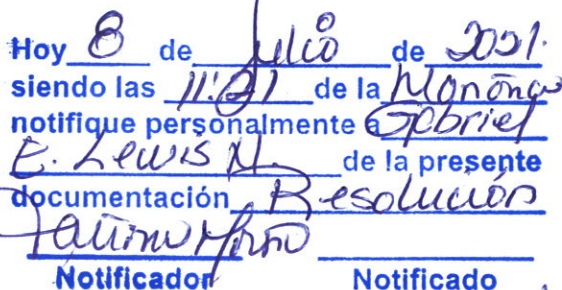 Hoy 8 de Julio de 2021.
siendo las 11:21 de la Mañana
notifique personalmente a Gabriel
E. Lewis N. de la presente
documentación Resolución
Notificador Notificado